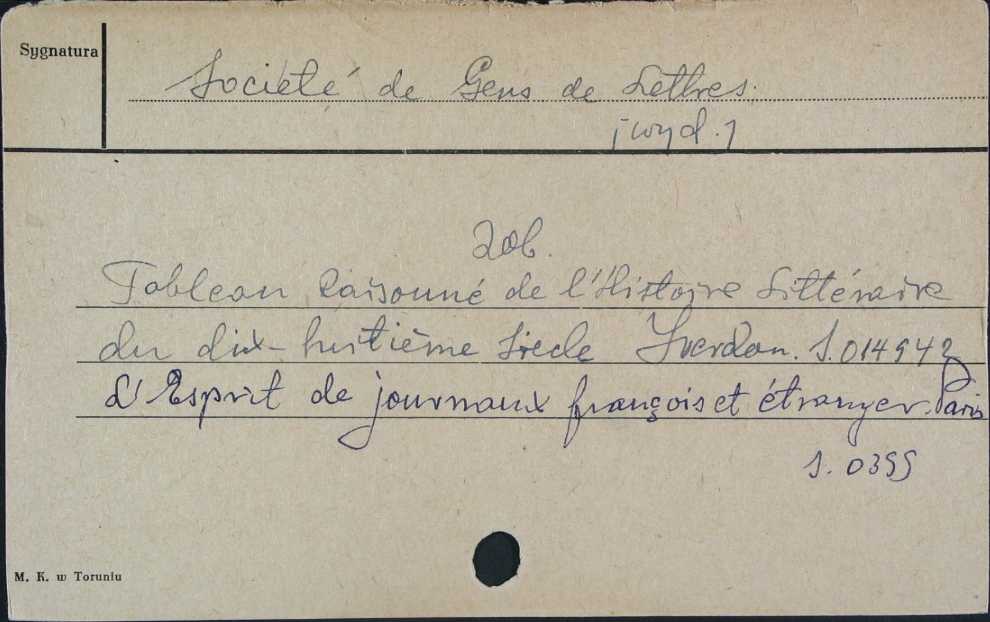 Sygnatura
Société de Gens de Lettres.
[wyd.]
Zob.
Tableau raisonné de l'Histoire Littéraire
du dix-huitième Siecle Yverdon. S.014942
L'Esprit de journaux françois et étranger. Paris
S. 0399
M. K. w Toruniu